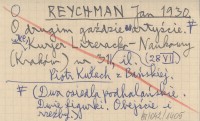 O REYCHMAN Jan 1930
O drugim gaździe-artyście.
Kurjer Literacko-Naukowy
(Kraków) nr 31, il. (28 VII)
Piotr Kulach z Bańskiej.
(Dwa osiedla podhalańskie.
Dwie figurki. Obejście i
rzeźby.)